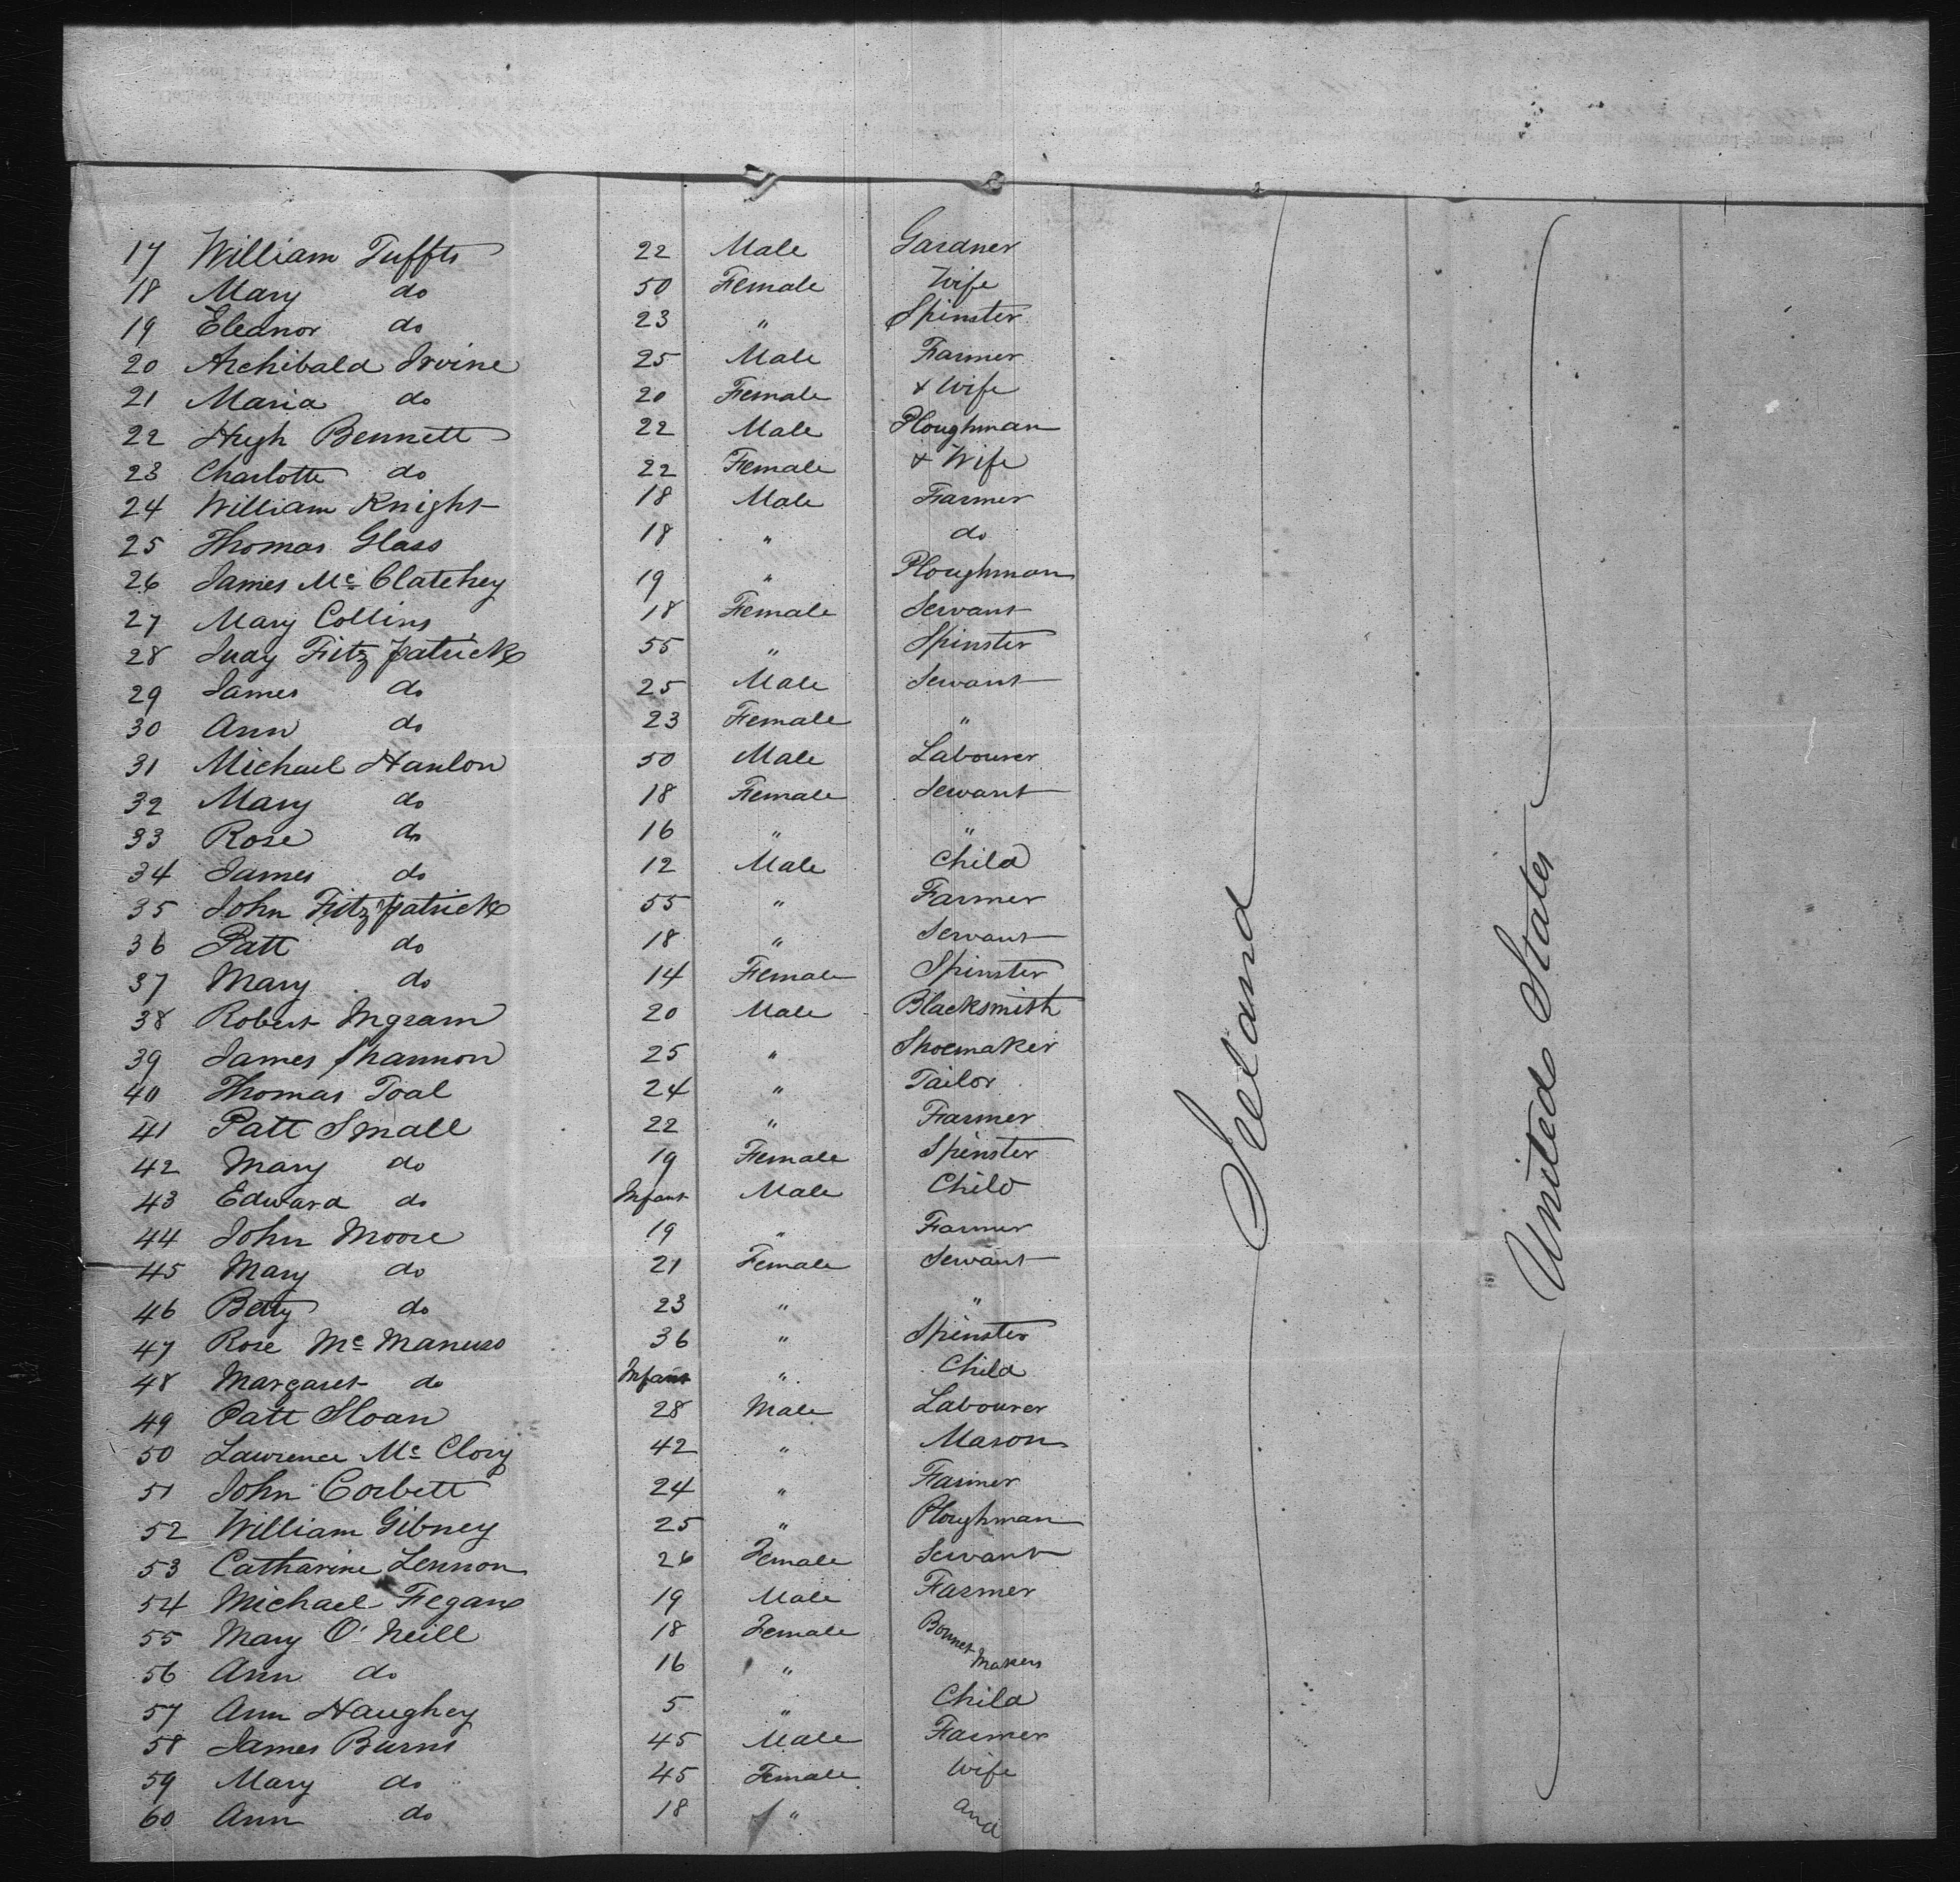 17 William Tuffts 22 Male Gardner
18 Mary do 50 Female Wife
19 Eleanor do 23 " Spinster
20 Archibald Irvine 25 Male Farmer
21 Maria do 20 Female & Wife
22 Hugh Bennett 22 Male Ploughman
23 Charlotte do 22 Female & Wife
24 William Knight 18 Male Farmer
25 Thomas Glass 18 " do
26 James Mc Clatchey 19 " Ploughman
27 Mary Collins 18 Female Servant
28 Fitzpatrick 55 " Spinster
29 James do 25 Male Servant
30 Ann do 23 Female "
31 Michael Hanlon 50 Male Labourer
32 Mary do 18 Female Servant
33 Rose do 16 " "
34 James do 12 Male Child
35 John Fitzpatrick 55 " Farmer
36 Patt do 18 " Servant
37 Mary do 14 Female Spinster
38 Robert Ingram 20 Male Blacksmith
39 James Shannon 25 " Shoemaker
40 Thomas Toal 24 " Tailor
41 Patt Small 22 " Farmer
42 Mary do 19 Female Spinster
43 Edward do Infant Male Child
44 John Moore 19 " Farmer
45 Mary do 21 Female Servant
46 Betty do 23 " "
47 Rose Mc Manus 36 " Spinster
48 Margaret do Infant " Child
49 Patt Sloan 28 Male Labourer
50 Lawrence Mc Clory 42 " Mason
51 John Corbett 24 " Farmer
52 William Gibney 25 " Ploughman
53 Catharine Lennon 26 Female Servant
54 Michael Fegan 19 Male Farmer
55 Mary O'Neill 18 Female Bonnet
56 Ann do 16 " Makers
57 Ann Haughey 5 " Child
58 James Burns 45 Male Farmer
59 Mary do 45 Female Wife
60 Ann do 18 " and
Ireland
United States